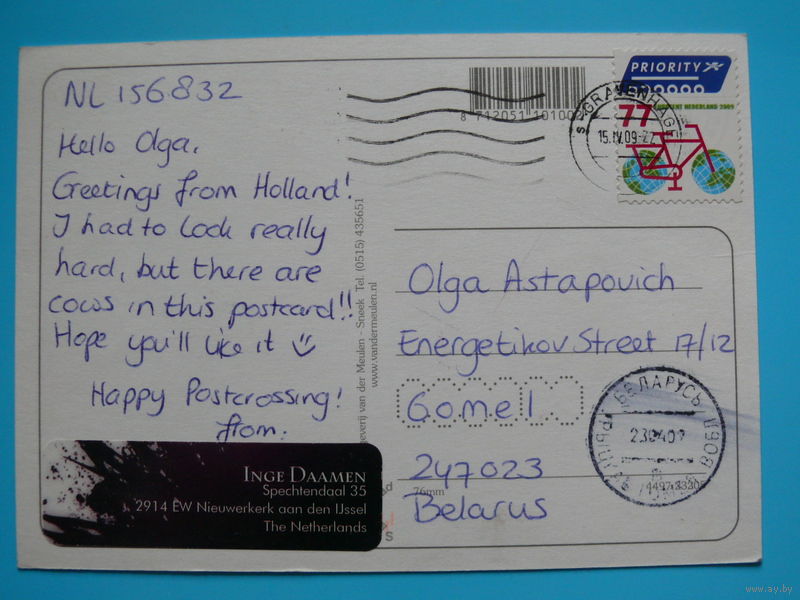 NL 156832
Hello Olga,
Greetings from Holland!
I had to look really
hard, but there are
cows in this postcard!!
Hope you'll like it
Happy Postcrossing!
from:
INGE DAAMEN
Spechtendaal 35
2914 EW Nieuwerkerk aan den IJssel
The Netherlands
van der Meulen - Sneek Tel. (0515) 435651
www.vandermeulen.nl
8 712051 10100
PRIORITY
77
NEDERLAND 2009
GRAVENHAG
15.IV.09
Olga Astapovich
Energetikov Street 17/12
Gomel
247023
Belarus
76mm
БЕЛАРУСЬ
www.ay.by